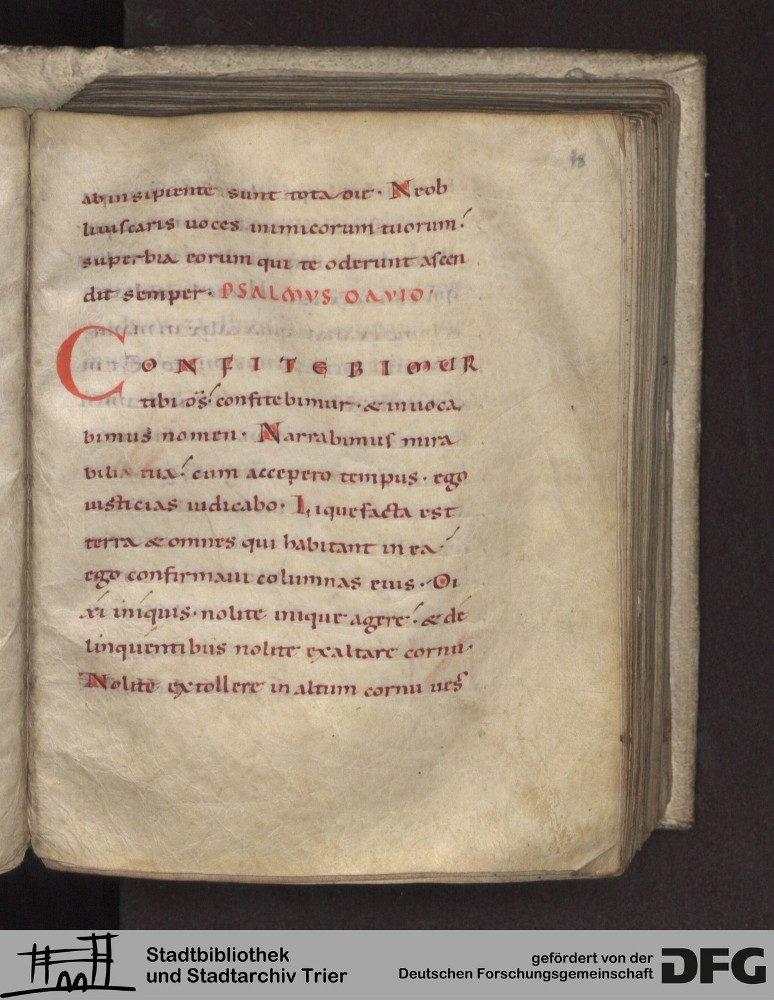 18
ab insipiente sunt tota die· Neob
liuiscaris uoces inimicorum tuorum·
superbia eorum qui te oderunt ascen
dit semper· PSALMVS DAVID·
CONFITEBIMUR
tibi dš confitebimur· & inuoca
bimus nomen· Narrabimus mira
bilia tua· cum accepero tempus· ego
iusticias iudicabo· Liquefacta est
terra & omnes qui habitant in ea·
ego confirmaui columnas eius· Di
xi iniquis· nolite inique agere· & de
linquentibus nolite exaltare cornu·
Nolite extollere in altum cornu ur̄m
Stadtbibliothek
und Stadtarchiv Trier
gefördert von der
Deutschen Forschungsgemeinschaft
DFG